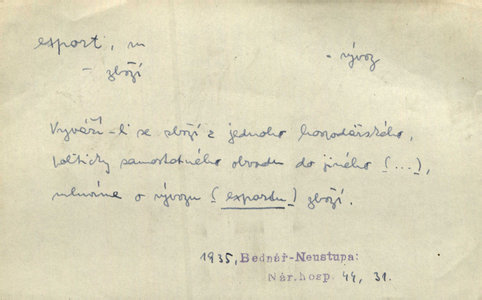 export, m - vývoz
- zboží
Vyváží-li se zboží z jednoho hospodářského,
politicky samostatného obvodu do jiného (...),
mluvíme o vývozu (exportu) zboží.
1935, Bednář-Neustupa:
Nár.hosp. 44, 31.